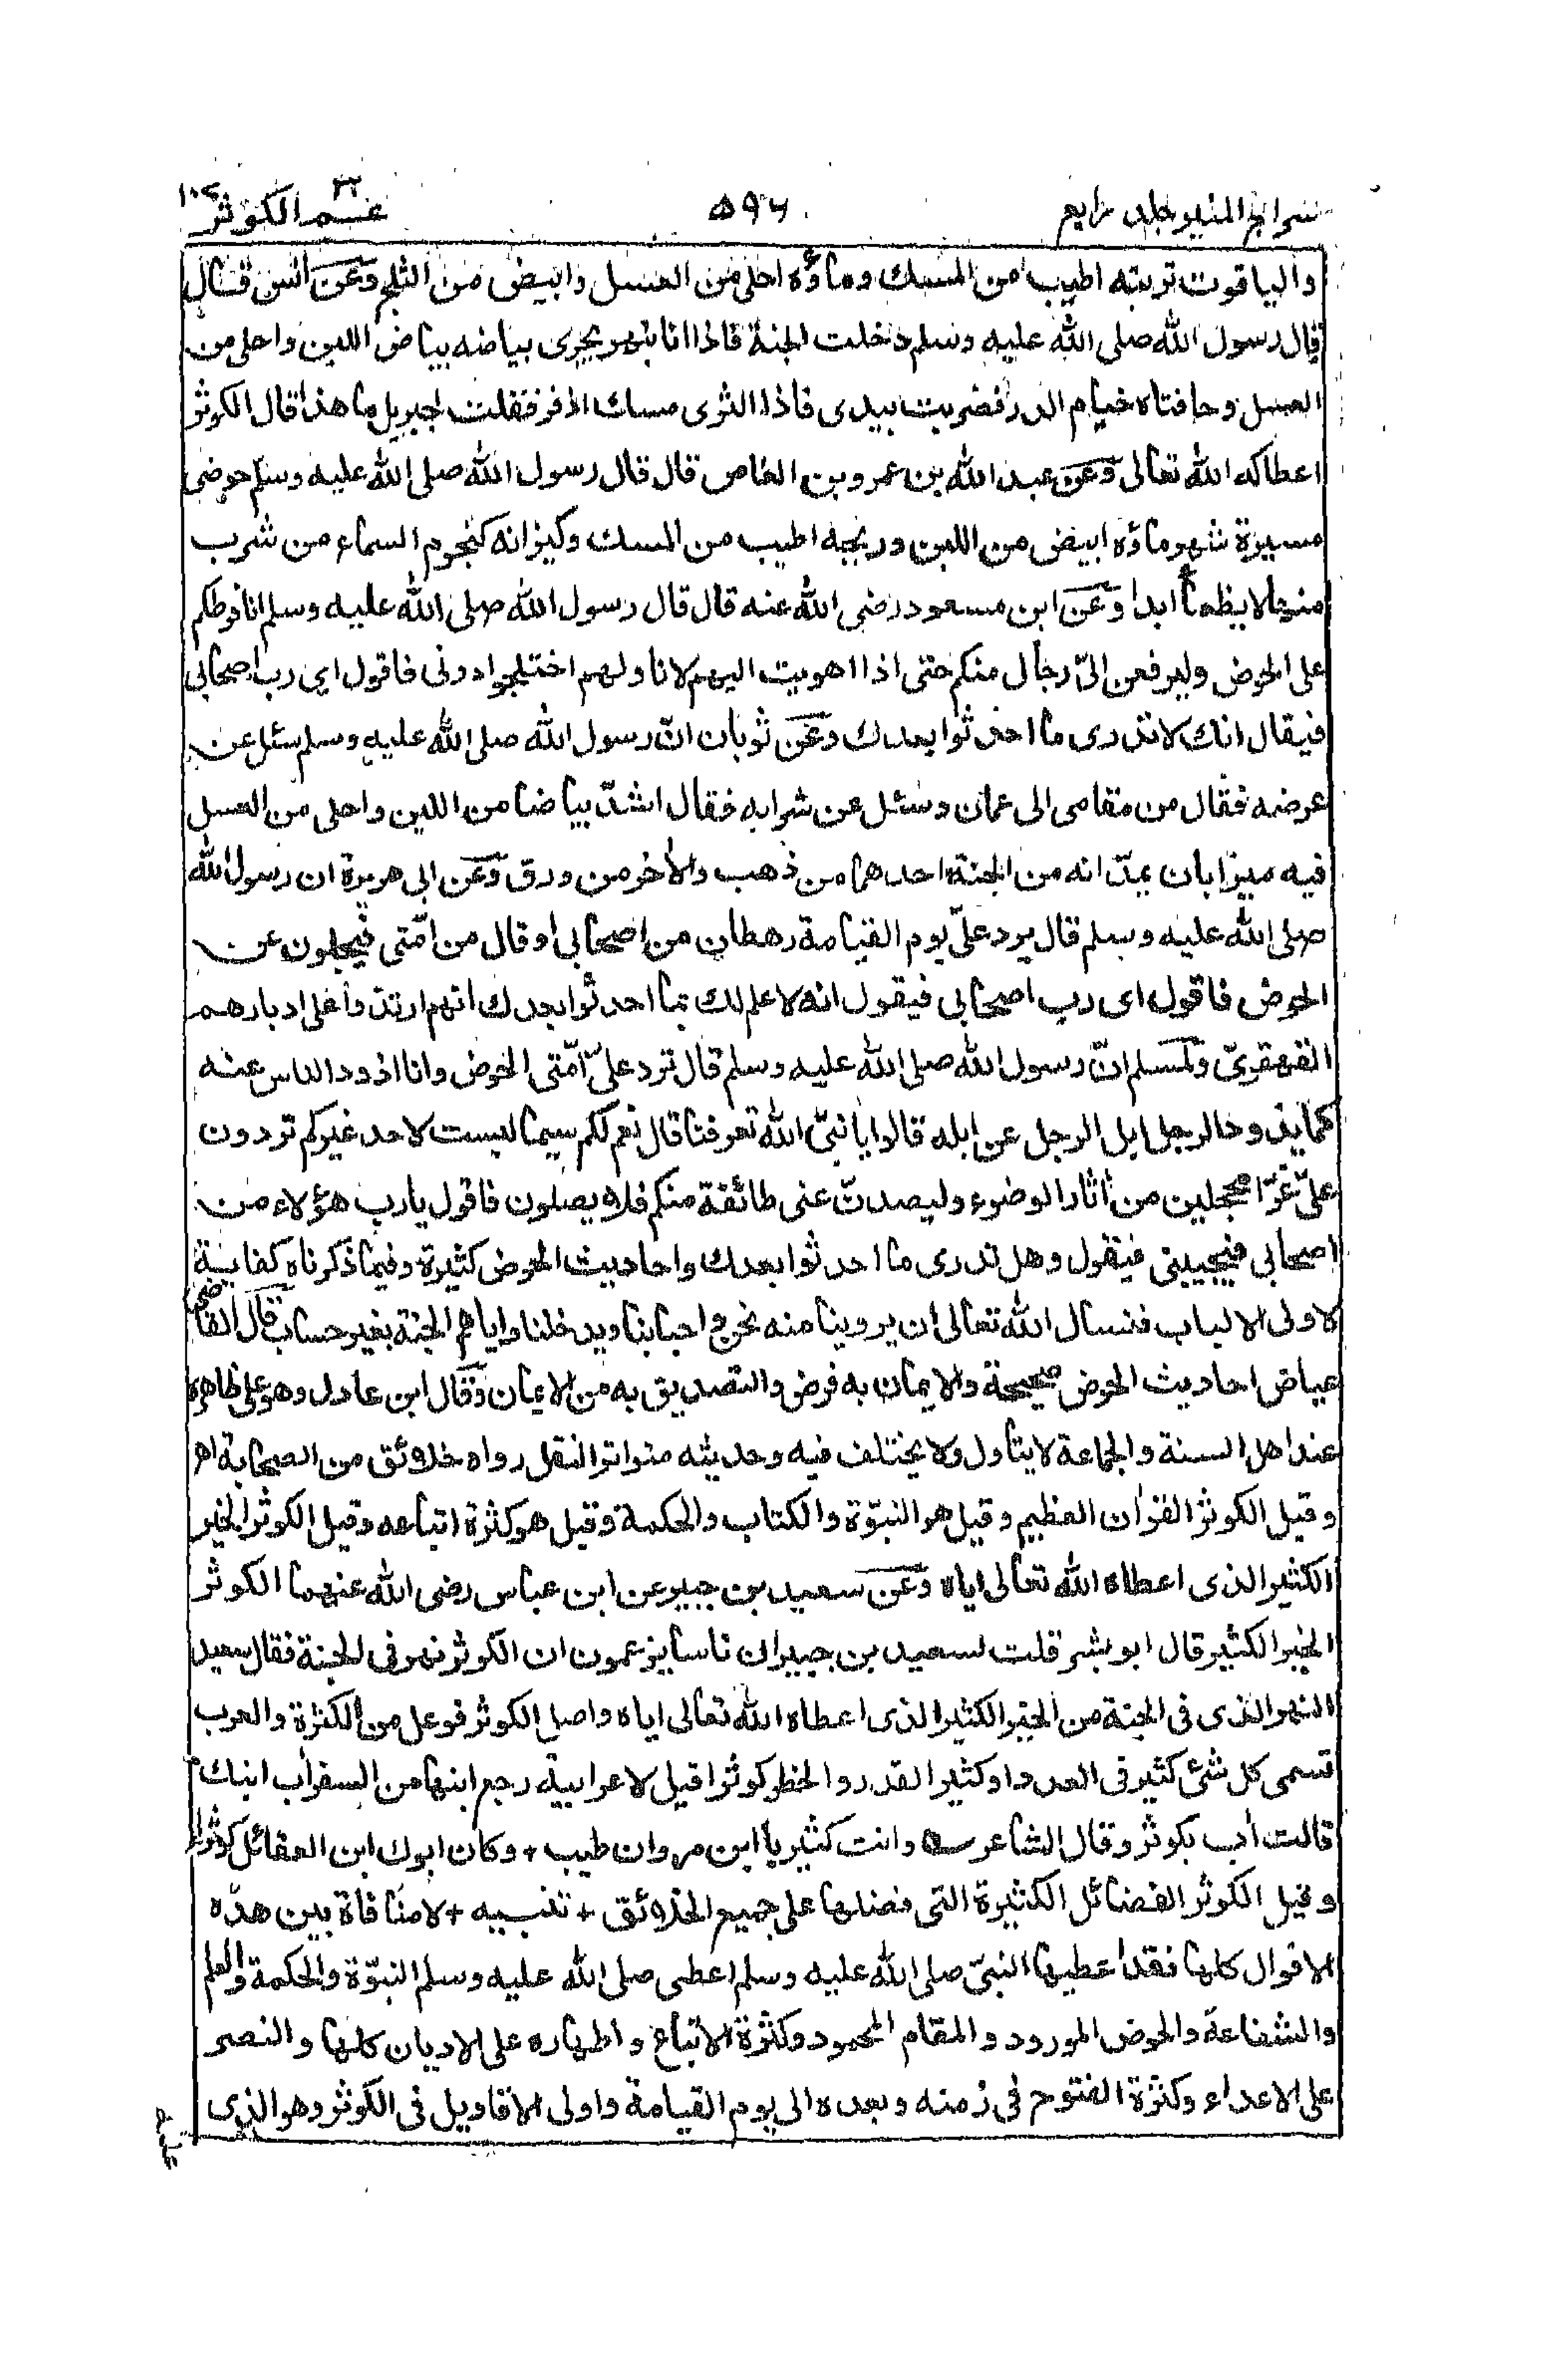 سراج المنير جلد رابع ٥٩٦ عـم ٣٠ الكوثر ١٠٨
والياقوت تربته اطيب من المسك وماؤه احلى من العسل وابيض من الثلج وعن انس قال
قال رسول الله صلى الله عليه وسلم دخلت الجنة فاذا انا بنهر يجرى بياضه بياض اللبن واحلى من
العسل وحافتاه خيام الدر فضربت بيدى فاذا الثرى مسك اذفر فقلت لجبريل ما هذا قال الكوثر
اعطاكه الله تعالى وعن عبد الله بن عمرو بن العاص قال قال رسول الله صلى الله عليه وسلم حوضى
مسيرة شهر ماؤه ابيض من اللبن وريحه اطيب من المسك وكيزانه كنجوم السماء من شرب
منها لا يظمأ ابدا وعن ابن مسعود رضى الله عنه قال قال رسول الله صلى الله عليه وسلم انا فرطكم
على الحوض وليرفعن الىّ رجال منكم حتى اذا اهويت اليهم لاناولهم اختلجوا دونى فاقول اى رب اصحابى
فيقال انك لا تدرى ما احدثوا بعدك وعن ثوبان انّ رسول الله صلى الله عليه وسلم سئل عن
عرضه فقال من مقامى الى عمان وسئل عن شرابه فقال اشدّ بياضا من اللبن واحلى من العسل
فيه ميزابان يمدّانه من الجنة احدهما من ذهب والاٰخر من ورق وعن ابى هريرة ان رسول الله
صلى الله عليه وسلم قال يرد علىّ يوم القيامة رهطان من اصحابى او قال من امّتى فيجلون عن
الحوض فاقول اى رب اصحابى فيقول انه لا علم لك بما احدثوا بعدك انهم ارتدوا على ادبارهم
القهقرىّ ولمسلم انّ رسول الله صلى الله عليه وسلم قال ترد علىّ امّتى الحوض وانا اذود الناس عنه
كما يذود الرجل ابل الرجل عن ابله قالوا يا نبىّ الله تعرفنا قال نعم لكم سيما ليست لاحد غيركم تردون
علىّ غرّا محجلين من اٰثار الوضوء وليصدنّ عنى طائفة منكم فلا يصلون فاقول يا رب هؤلاء من
اصحابى فيجيبنى فيقول وهل تدرى ما احدثوا بعدك واحاديث الحوض كثيرة وفيما ذكرناه كفاية
لاولى الالباب فنسال الله تعالى ان يروينا منه نحن واحبابنا ويدخلنا واياهم الجنة بغير حساب قال القاضى
عياض احاديث الحوض صحيحة والايمان به فرض والتصديق به من الايمان وقال ابن عادل وهو على ظاهره
عند اهل السنة والجماعة لا يتأول ولا يختلف فيه وحديثه متواتر النقل رواه خلائق من الصحابة اهـ
وقيل الكوثر القراٰن العظيم وقيل هو النبوّة والكتاب والحكمة وقيل هو كثرة اتباعه وقيل الكوثر الخير
الكثير الذى اعطاه الله تعالى اياه وعن سعيد بن جبير عن ابن عباس رضى الله عنهما الكوثر
الخير الكثير قال ابو بشر قلت لسعيد بن جبير ان ناسا يزعمون ان الكوثر نهر فى الجنة فقال سعيد
النهر الذى فى الجنة من الخير الكثير الذى اعطاه الله تعالى اياه واصل الكوثر فوعل من الكثرة والعرب
تسمى كل شئ كثير فى العدد او كثير القدر والخطر كوثرا قيل لاعرابية رجع ابنها من السفر اٰب ابنك
قالت اٰب بكوثر وقال الشاعر وانت كثير يا ابن مروان طيب + وكان ابوك ابن العقائل كوثرا
وقيل الكوثر الفضائل الكثيرة التى فضل بها على جميع الخلائق + تنبيه + لا منافاة بين هذه
الاقوال كلها فقد اعطيها النبىّ صلى الله عليه وسلم اعطى صلى الله عليه وسلم النبوّة والحكمة والعلم
والشفاعة والحوض المورود والمقام المحمود وكثرة الاتباع واظهاره على الاديان كلها والنصر
على الاعداء وكثرة الفتوح فى زمنه وبعده الى يوم القيامة واولى الاقاويل فى الكوثر وهو الذى
عليه